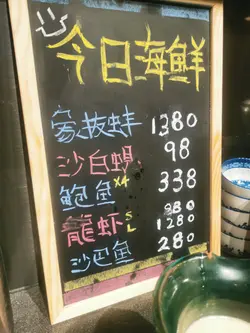 今日海鮮
象拔蚌 1380
沙白蜆 98
鮑魚 X4 338
龍蝦 S 980
L 1280
沙巴魚 280